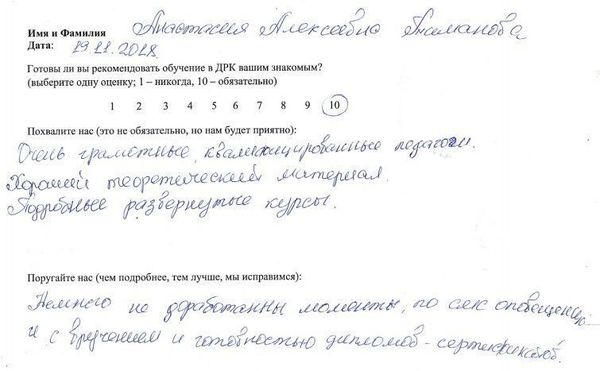 Имя и Фамилия Анастасия Алексеевна Атаманова
Дата: 19.11.2018
Готовы ли вы рекомендовать обучение в ДРК вашим знакомым?
(выберите одну оценку; 1 – никогда, 10 – обязательно)
1 2 3 4 5 6 7 8 9 10
Похвалите нас (это не обязательно, но нам будет приятно):
Очень грамотные, квалифицированные педагоги.
Хороший теоретический материал.
Подробные развернутые курсы.
Поругайте нас (чем подробнее, тем лучше, мы исправимся):
Немного не доработанны моменты, по смс оповещению
и с вручением и готовностью дипломов - сертификатов.